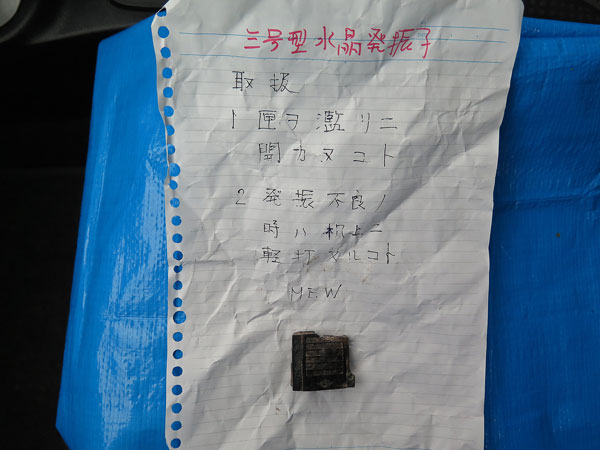 三号型水晶発振子
取扱
1 匣ヲ濫リニ
開カヌコト
2 発振不良ノ
時ハ机上ニ
軽打スルコト
M.E.W